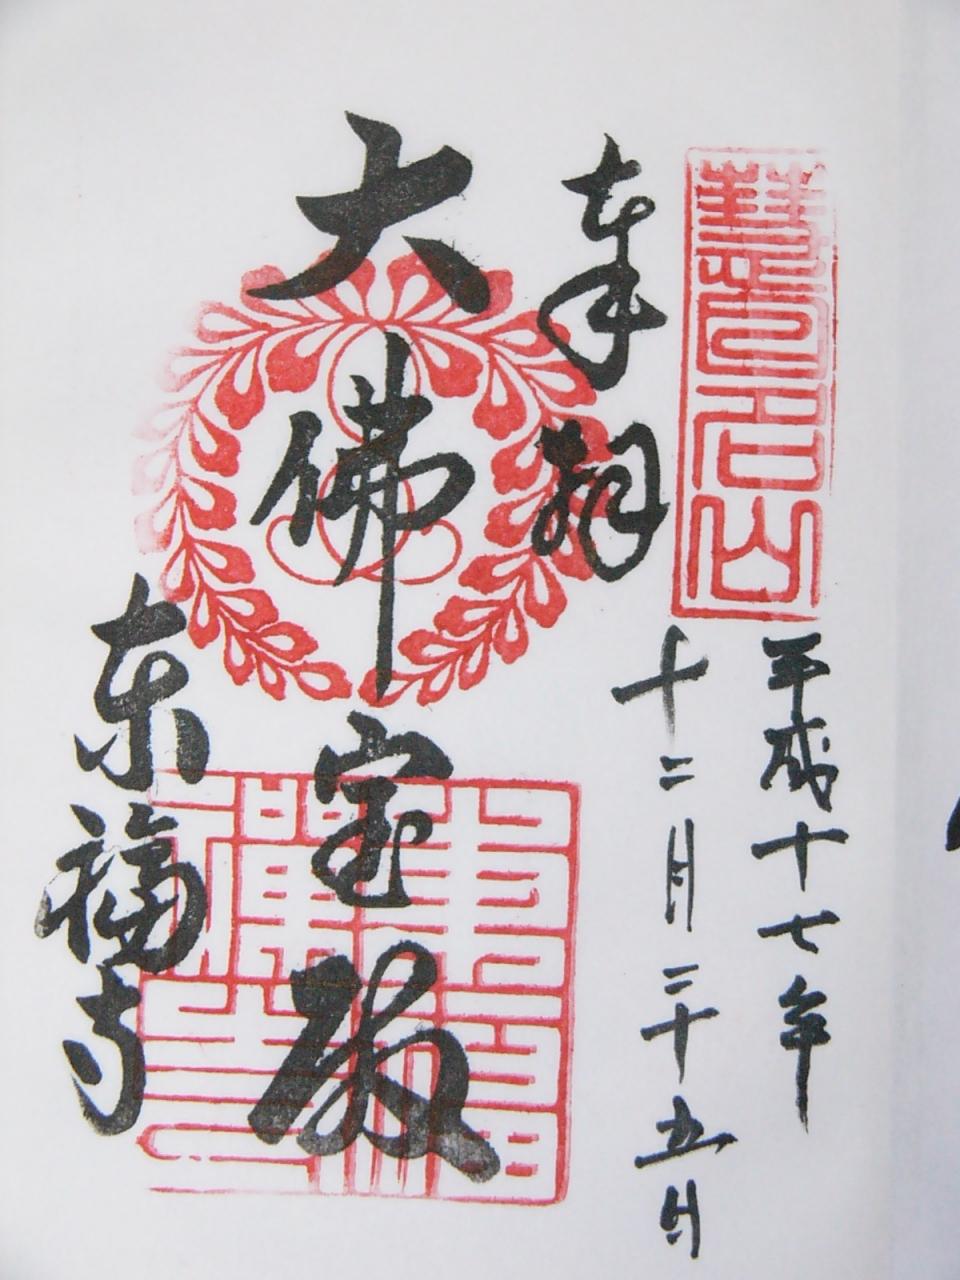 慧日山
奉拝
平成十七年
十二月二十五日
大佛宝殿
東福寺
東福禅寺